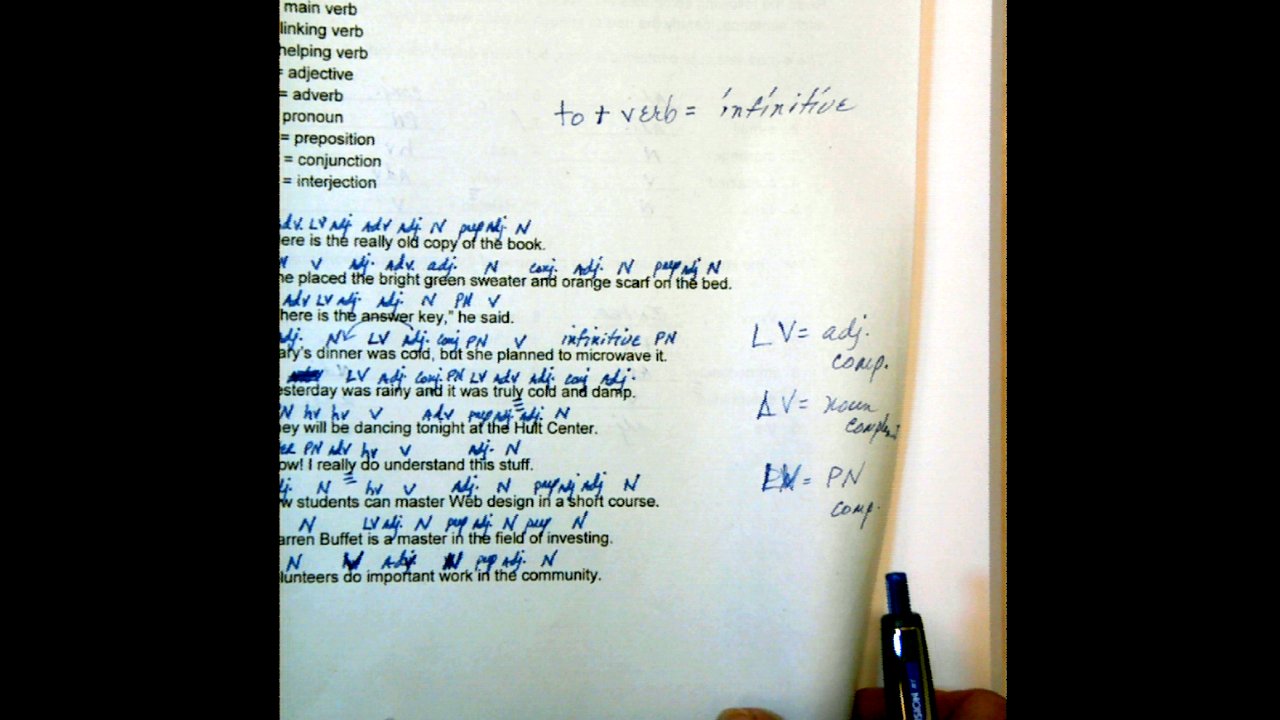 main verb
linking verb
helping verb
= adjective
= adverb
pronoun
to + verb = infinitive
= preposition
= conjunction
= interjection
adv. LV Adj. Adv Adj. N prep Adj. N
ere is the really old copy of the book.
N V Adj. Adv. adj. N conj. Adj. N prep Adj N
he placed the bright green sweater and orange scarf on the bed.
Adv LV adj. Adj. N PN V
here is the answer key," he said.
adj. N LV Adj. conj PN V infinitive PN
ary's dinner was cold, but she planned to microwave it.
LV = adj.
comp.
LV Adj conj. PN LV Adv Adj. conj Adj.
esterday was rainy and it was truly cold and damp.
N hv hv V Adv prep Adj Adj. N
ey will be dancing tonight at the Hult Center.
LV = noun
PN Adv hv V adj. N
ow! I really do understand this stuff.
PN
comp.
dj. N hv V Adj. N prep Adj Adj N
w students can master Web design in a short course.
N LV adj. N prep Adj. N prep N
arren Buffet is a master in the field of investing.
N V Adj N prep Adj. N
lunteers do important work in the community.